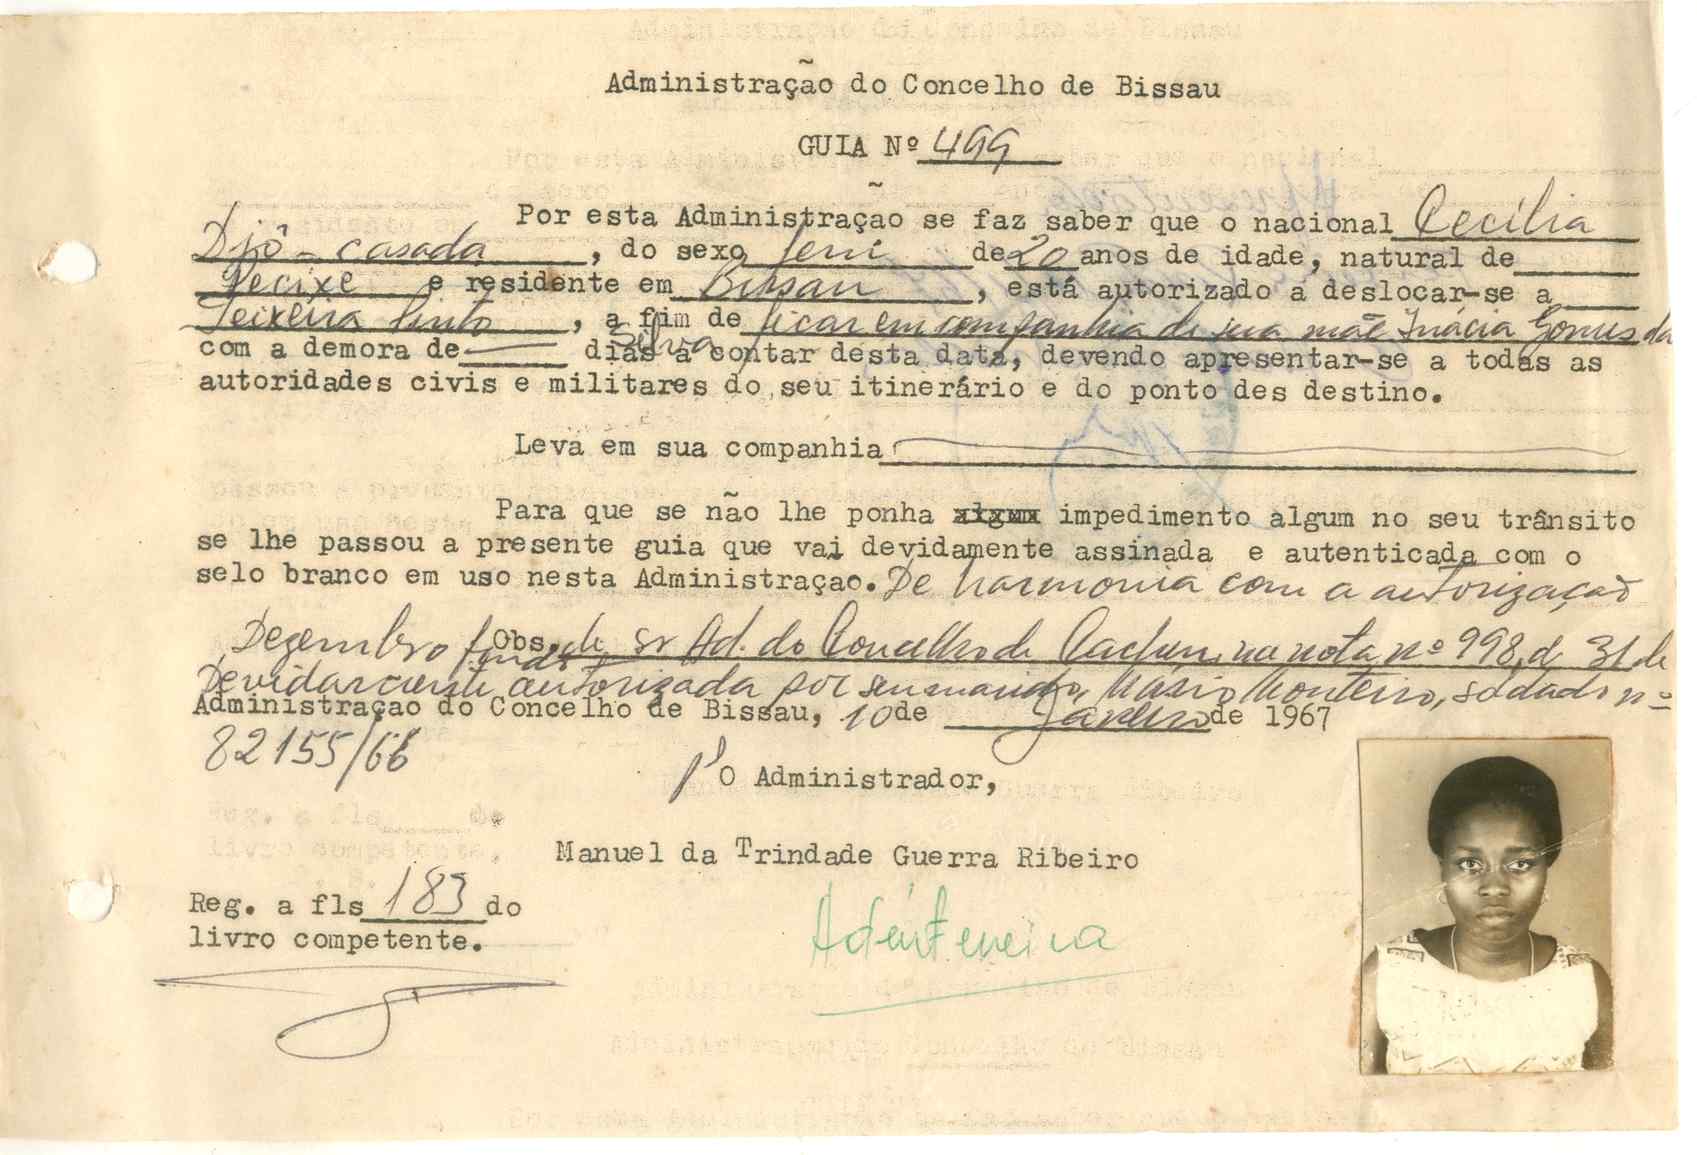 Administração do Concelho de Bissau
GUIA Nº 499
Por esta Administração se faz saber que o nacional Cecília
Djô - casada, do sexo fem de 20 anos de idade, natural de
Pecixe e residente em Bissau, está autorizado a deslocar-se a
Teixeira Pinto, a fim de ficar em companhia de sua mãe Inácia Gomes da
Silva
com a demora de dias a contar desta data, devendo apresentar-se a todas as
autoridades civis e militares do seu itinerário e do ponto des destino.
Leva em sua companhia
Para que se não lhe ponha algum impedimento algum no seu trânsito
se lhe passou a presente guia que vai devidamente assinada e autenticada com o
selo branco em uso nesta Administração. De harmonia com a autorização
Obs. do Sr Ad. do Concelho de Cacheu, na nota nº 998, de 31 de
Dezembro findo
Devidamente autorizada por seu marido, Mário Monteiro, soldado nº
Administração do Concelho de Bissau, 10 de Janeiro de 1967
82155/66
p' O Administrador,
Manuel da Trindade Guerra Ribeiro
Reg. a fls 183 do
livro competente.